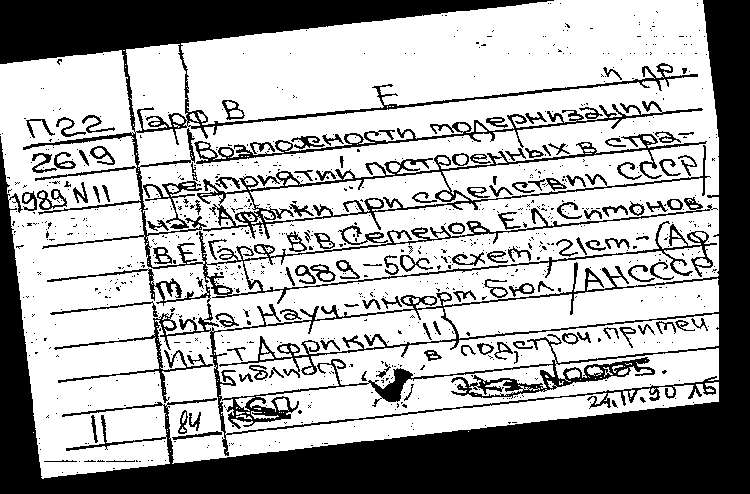 и др.
П22 Гарф, В Е
2619 Возможности модернизации
1989 N11 предприятий, построенных в стра-
нах Африки при содействии СССР /
В.Е. Гарф, В.В. Семенов, Е.Л. Симонов. -
М.: Б. и., 1989. - 50с.: схем.; 21см. - (Аф-
рика: Науч.-информ. бюл. / АН СССР
Ин-т Африки; 11).
Библиогр. в подстроч. примеч.
Экз. N0005.
11 84
24.IV.90 ЛБ